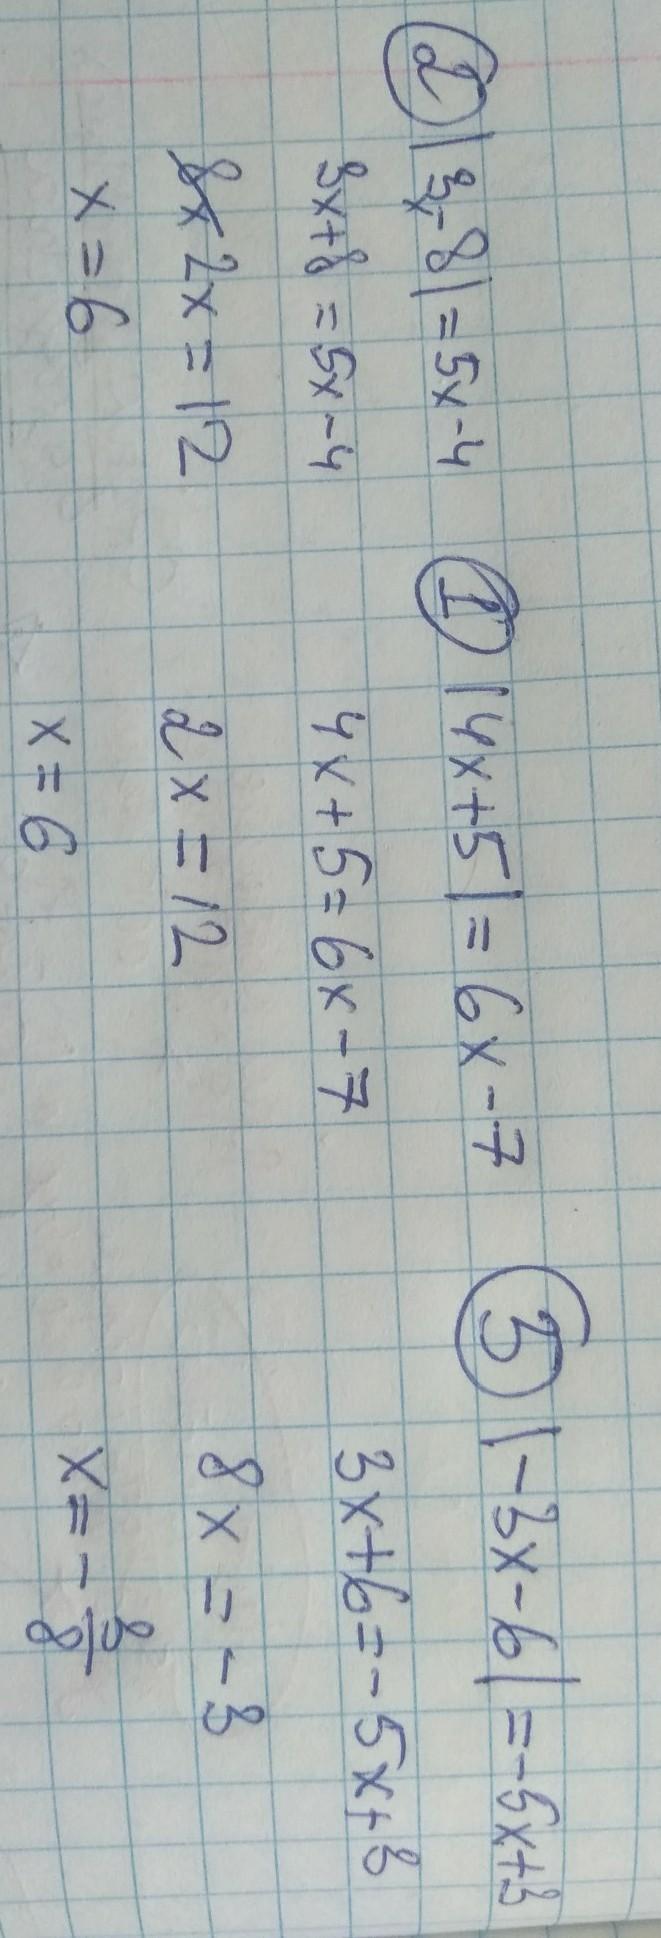 ② |3x-8|=5x-4
3x+8=5x-4
2x=12
x=6
① |4x+5|=6x-7
4x+5=6x-7
2x=12
x=6
③ |-3x-6|=-5x+3
3x+6=-5x+3
8x=-3
x=-3/8